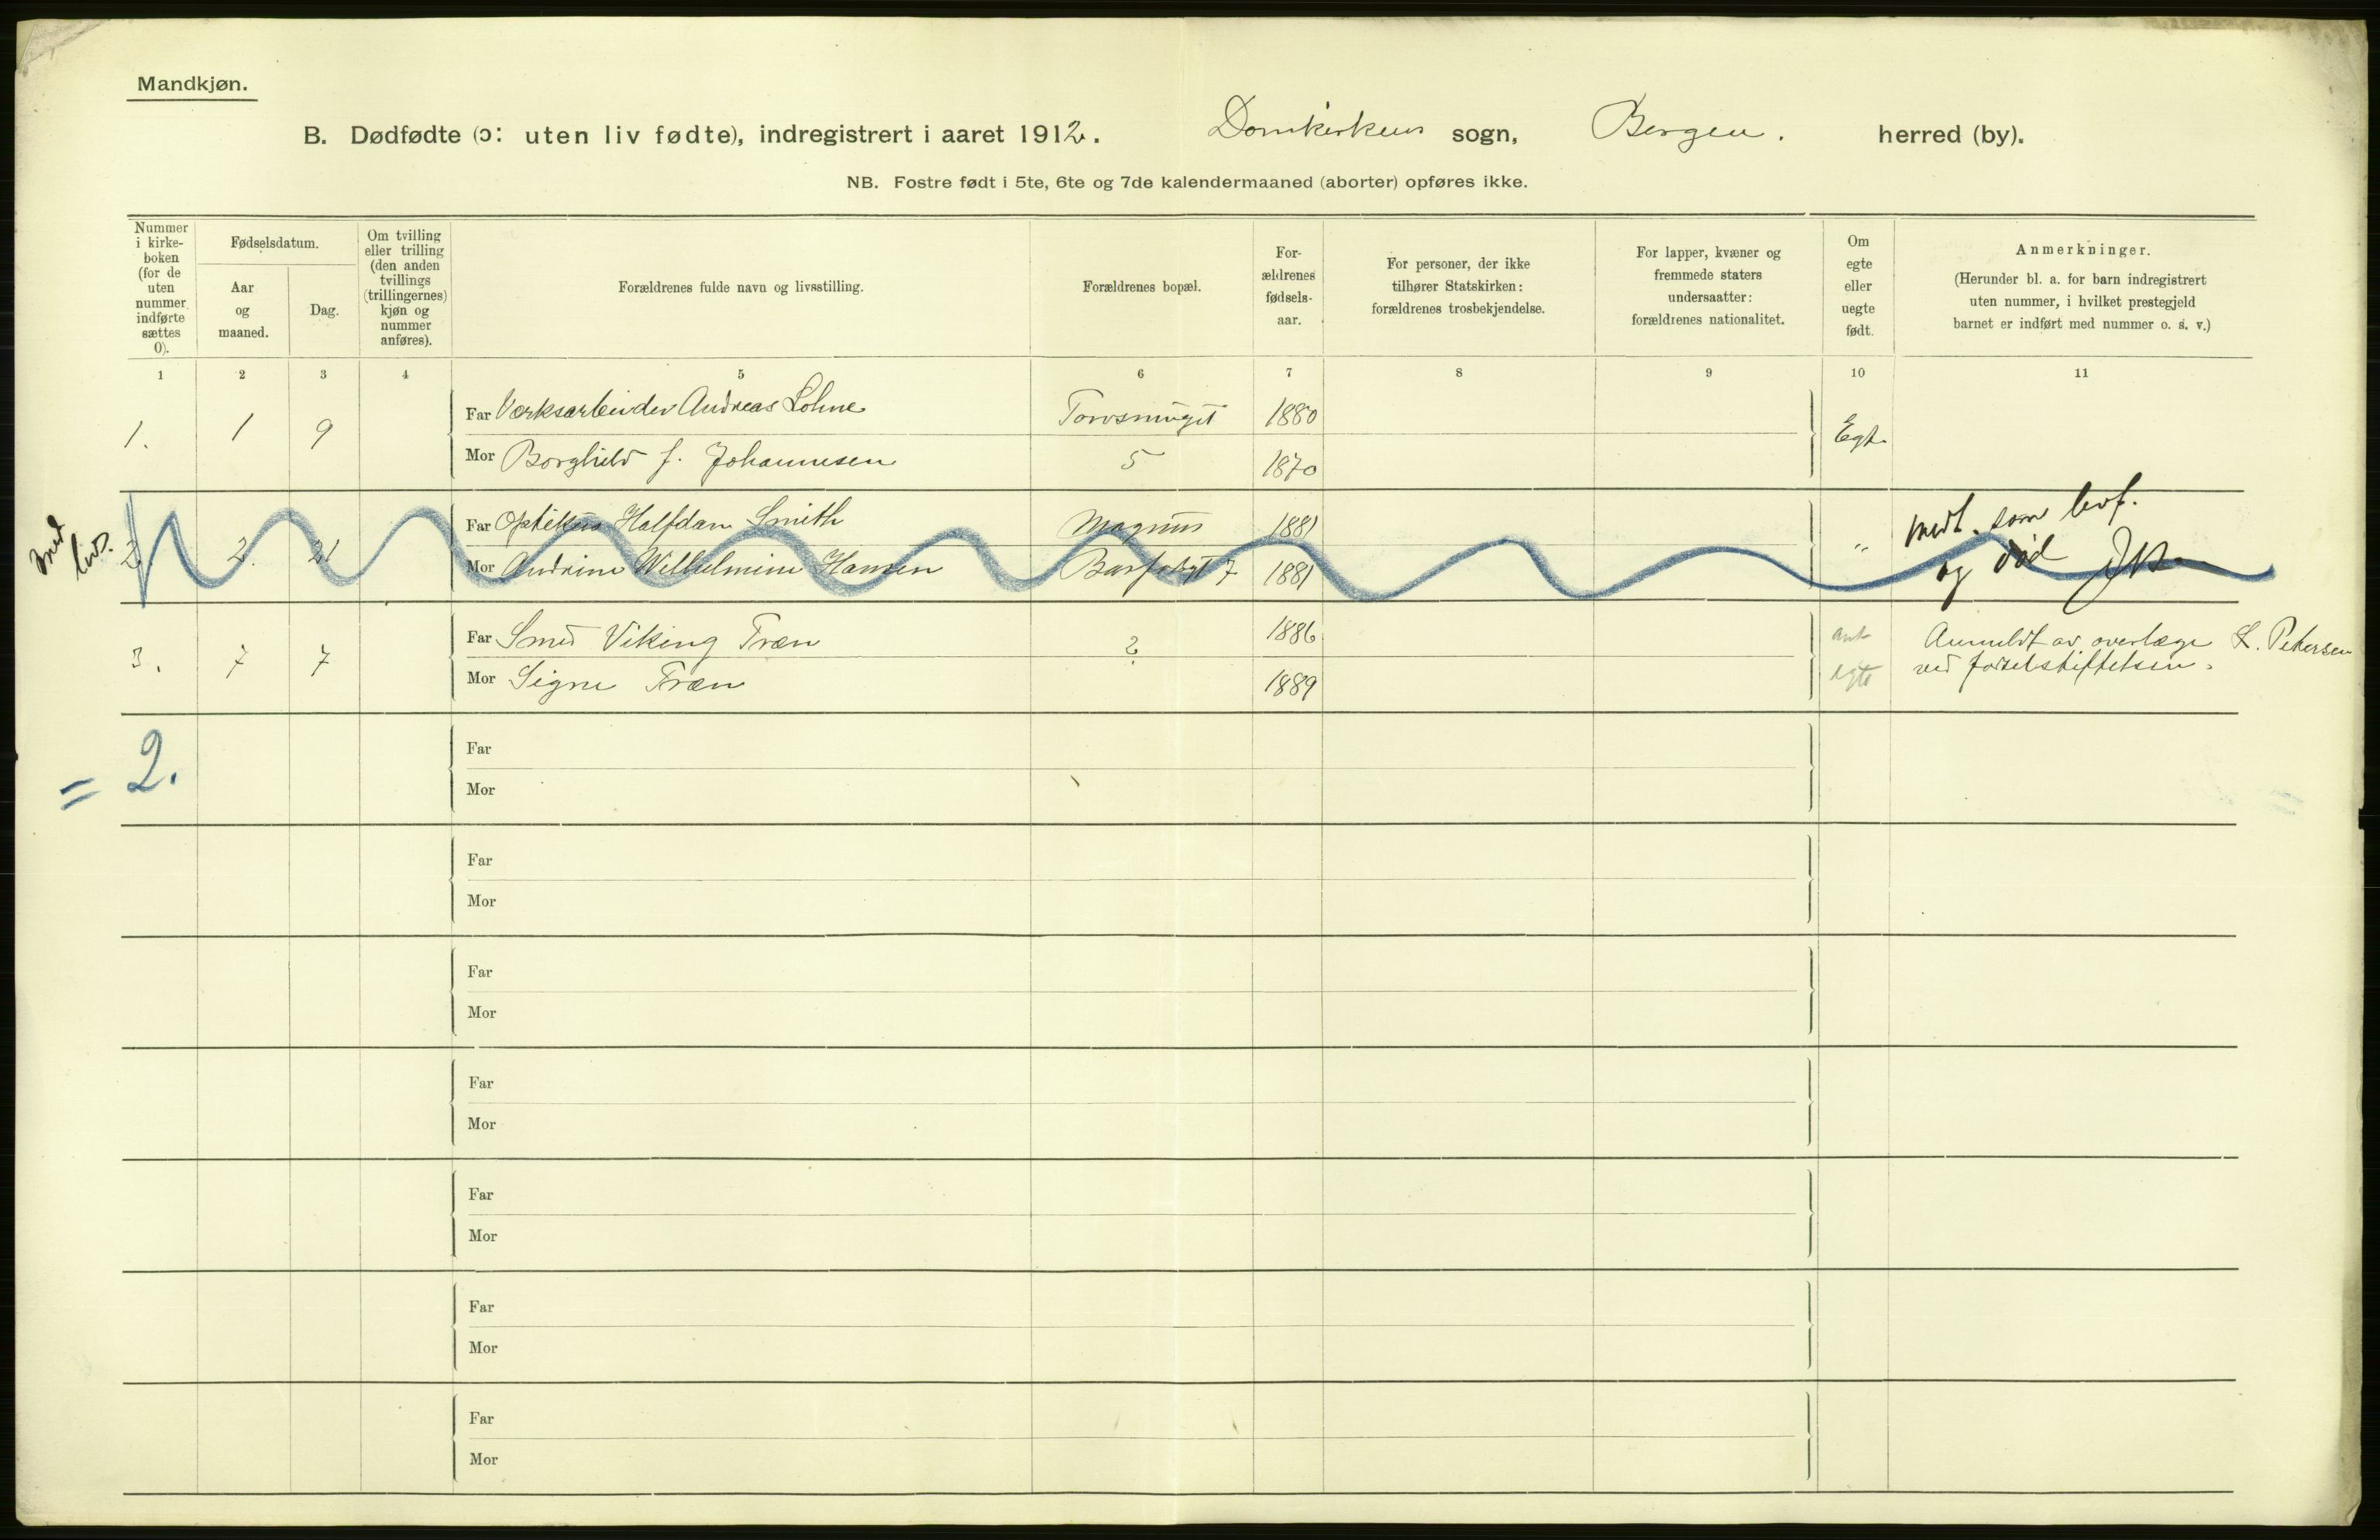 Mandkjøn.
B. Dødfødte (ɔ: uten liv fødte), indregistrert i aaret 1912. Domkirkens sogn, Bergen. herred (by).
NB. Fostre født i 5te, 6te og 7de kalendermaaned (aborter) opføres ikke.
Nummer i kirke-boken (for de uten nummer indførte sættes 0).
Fødselsdatum.
Aar og maaned.
Dag.
Om tvilling eller trilling (den anden tvillings (trillingernes) kjøn og nummer anføres).
Forældrenes fulde navn og livsstilling.
Forældrenes bopæl.
For-ældrenes fødsels-aar.
For personer, der ikke tilhører Statskirken: forældrenes trosbekjendelse.
For lapper, kvæner og fremmede staters undersaatter: forældrenes nationalitet.
Om egte eller uegte født.
Anmerkninger.
(Herunder bl. a. for barn indregistrert uten nummer, i hvilket prestegjeld barnet er indført med nummer o. s. v.)
1 2 3 4 5 6 7 8 9 10 11
1. 1 9 Far Værksarbeider Andreas Lohne Torvsmuget 1880 Egt.
Mor Borghild f. Johannesen 5 1870
Med livs.
2. 2. 21 Far Optikus Halfdan Smith Magnus 1881 „ Medt. som levf.
Mor Andrine Wilhelmine Hansen Barfodsgt 7 1881 og død
3. 7 7 Far Smed Viking Træn ? 1886 ant Anmeldt av overlæge K. Petersen
Mor Signe Træn 1889 egte ved fødselstiftelsen.
= 2.
Far
Mor
Far
Mor
Far
Mor
Far
Mor
Far
Mor
Far
Mor
Far
Mor